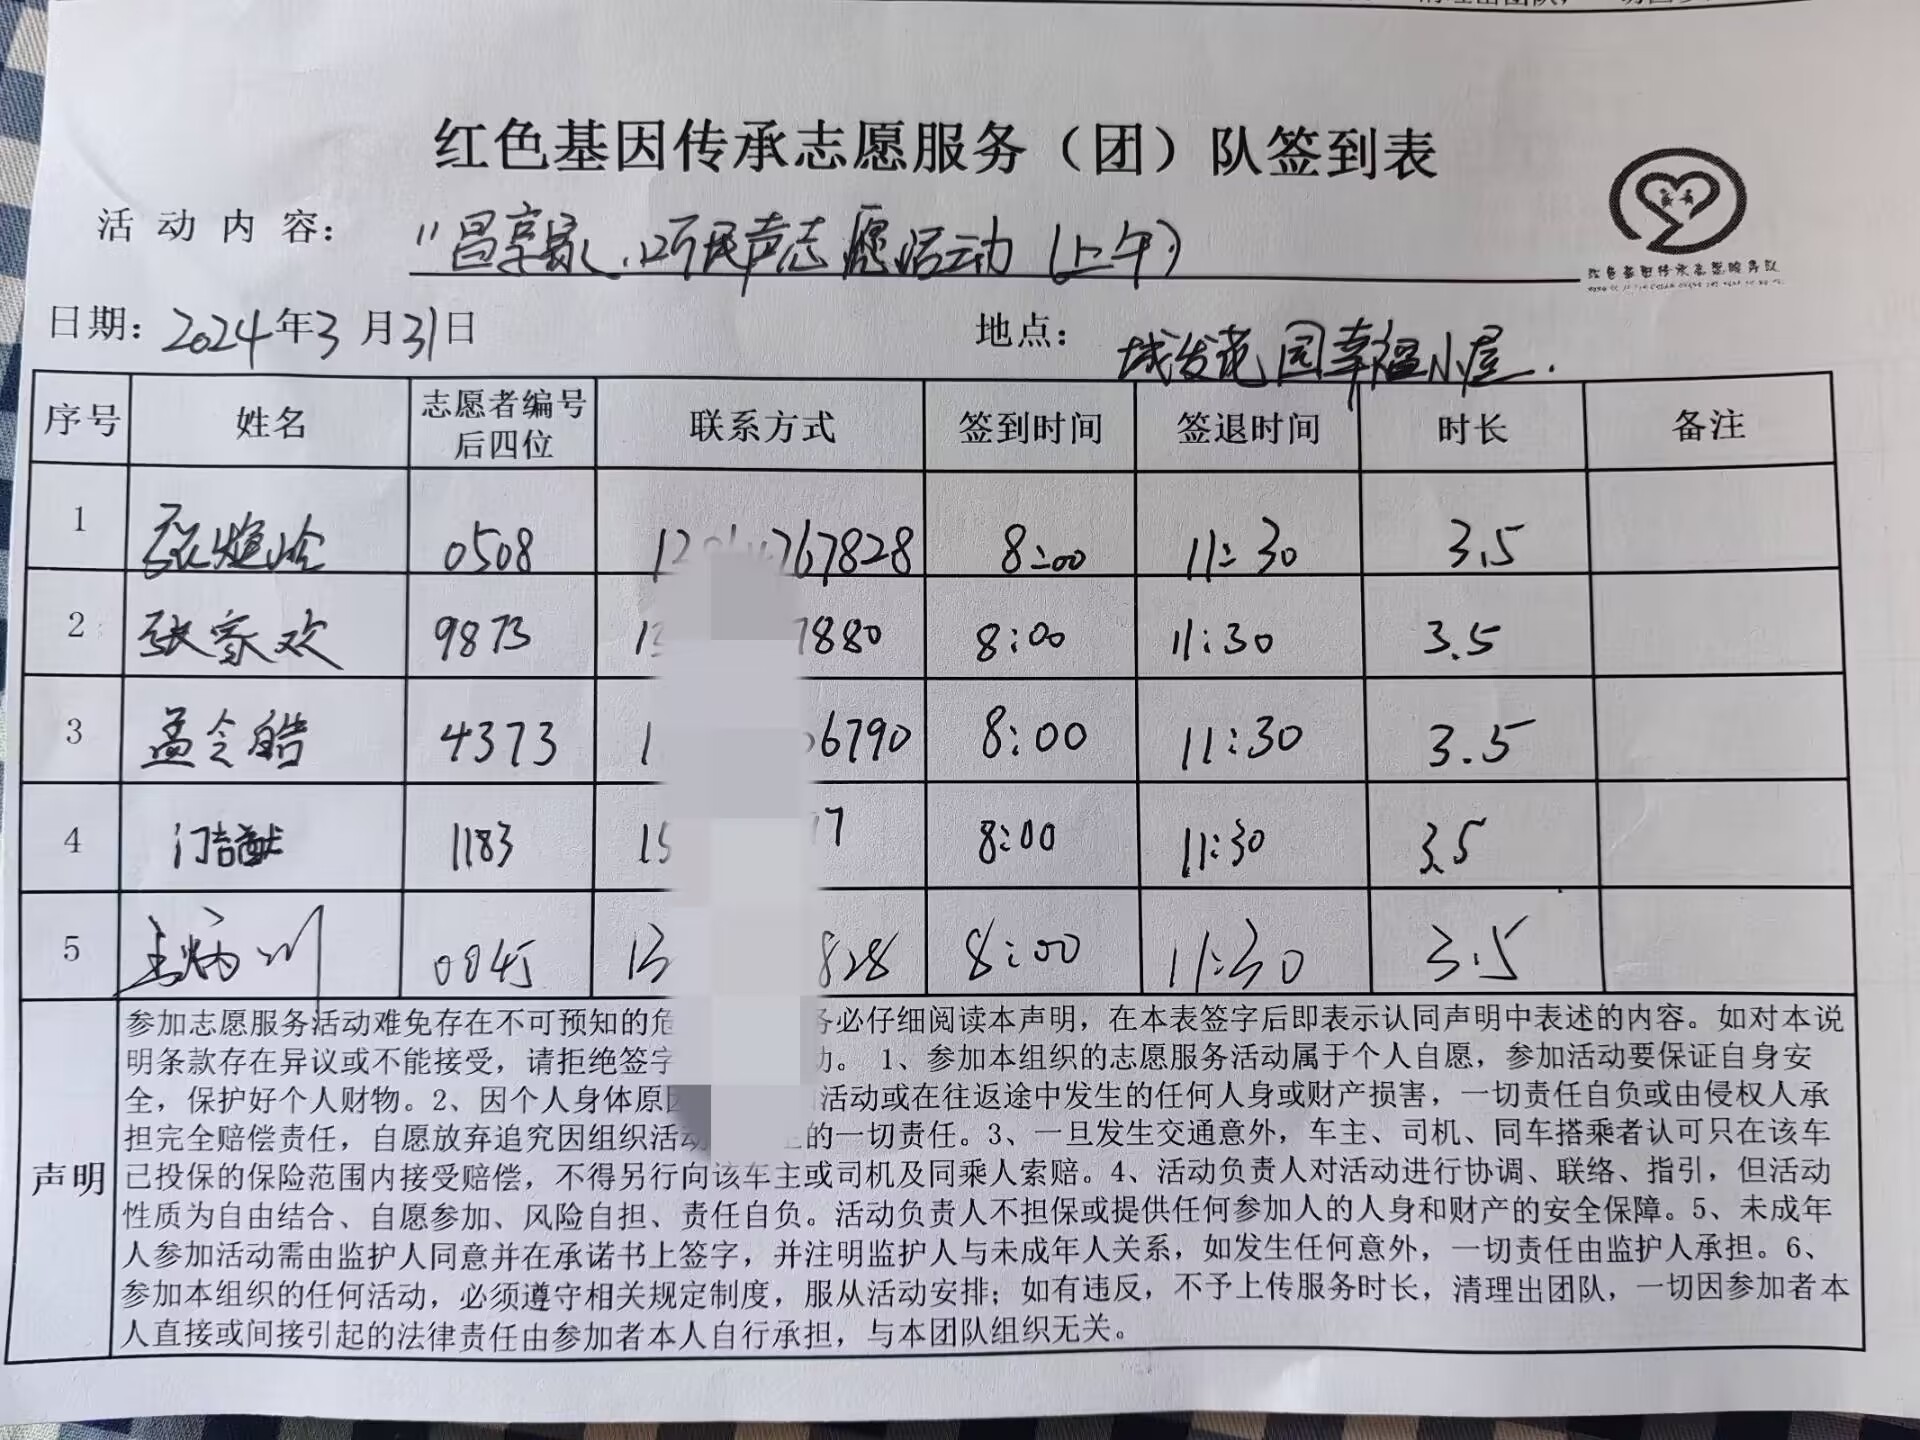 红色基因传承志愿服务（团）队签到表
活动内容： "昌享家,听民声志愿活动（上午）
红色基因传承志愿服务队
日期：2024年3月31日 地点：城发花园幸福小屋.
序号 姓名 志愿者编号后四位 联系方式 签到时间 签退时间 时长 备注
1 0508 767828 8:00 11:30 3.5
2 张家欢 9873 13 7880 8:00 11:30 3.5
3 孟令皓 4373 1 6790 8:00 11:30 3.5
4 门喆猷 1183 15 7 8:00 11:30 3.5
5 0045 13 828 8:00 11:30 3.5
声明
参加志愿服务活动难免存在不可预知的危 务必仔细阅读本声明，在本表签字后即表示认同声明中表述的内容。如对本说
明条款存在异议或不能接受，请拒绝签字 动。 1、参加本组织的志愿服务活动属于个人自愿，参加活动要保证自身安
全，保护好个人财物。2、因个人身体原因 活动或在往返途中发生的任何人身或财产损害，一切责任自负或由侵权人承
担完全赔偿责任，自愿放弃追究因组织活动 的一切责任。3、一旦发生交通意外，车主、司机、同车搭乘者认可只在该车
已投保的保险范围内接受赔偿，不得另行向该车主或司机及同乘人索赔。4、活动负责人对活动进行协调、联络、指引，但活动
性质为自由结合、自愿参加、风险自担、责任自负。活动负责人不担保或提供任何参加人的人身和财产的安全保障。5、未成年
人参加活动需由监护人同意并在承诺书上签字，并注明监护人与未成年人关系，如发生任何意外，一切责任由监护人承担。6、
参加本组织的任何活动，必须遵守相关规定制度，服从活动安排；如有违反，不予上传服务时长，清理出团队，一切因参加者本
人直接或间接引起的法律责任由参加者本人自行承担，与本团队组织无关。